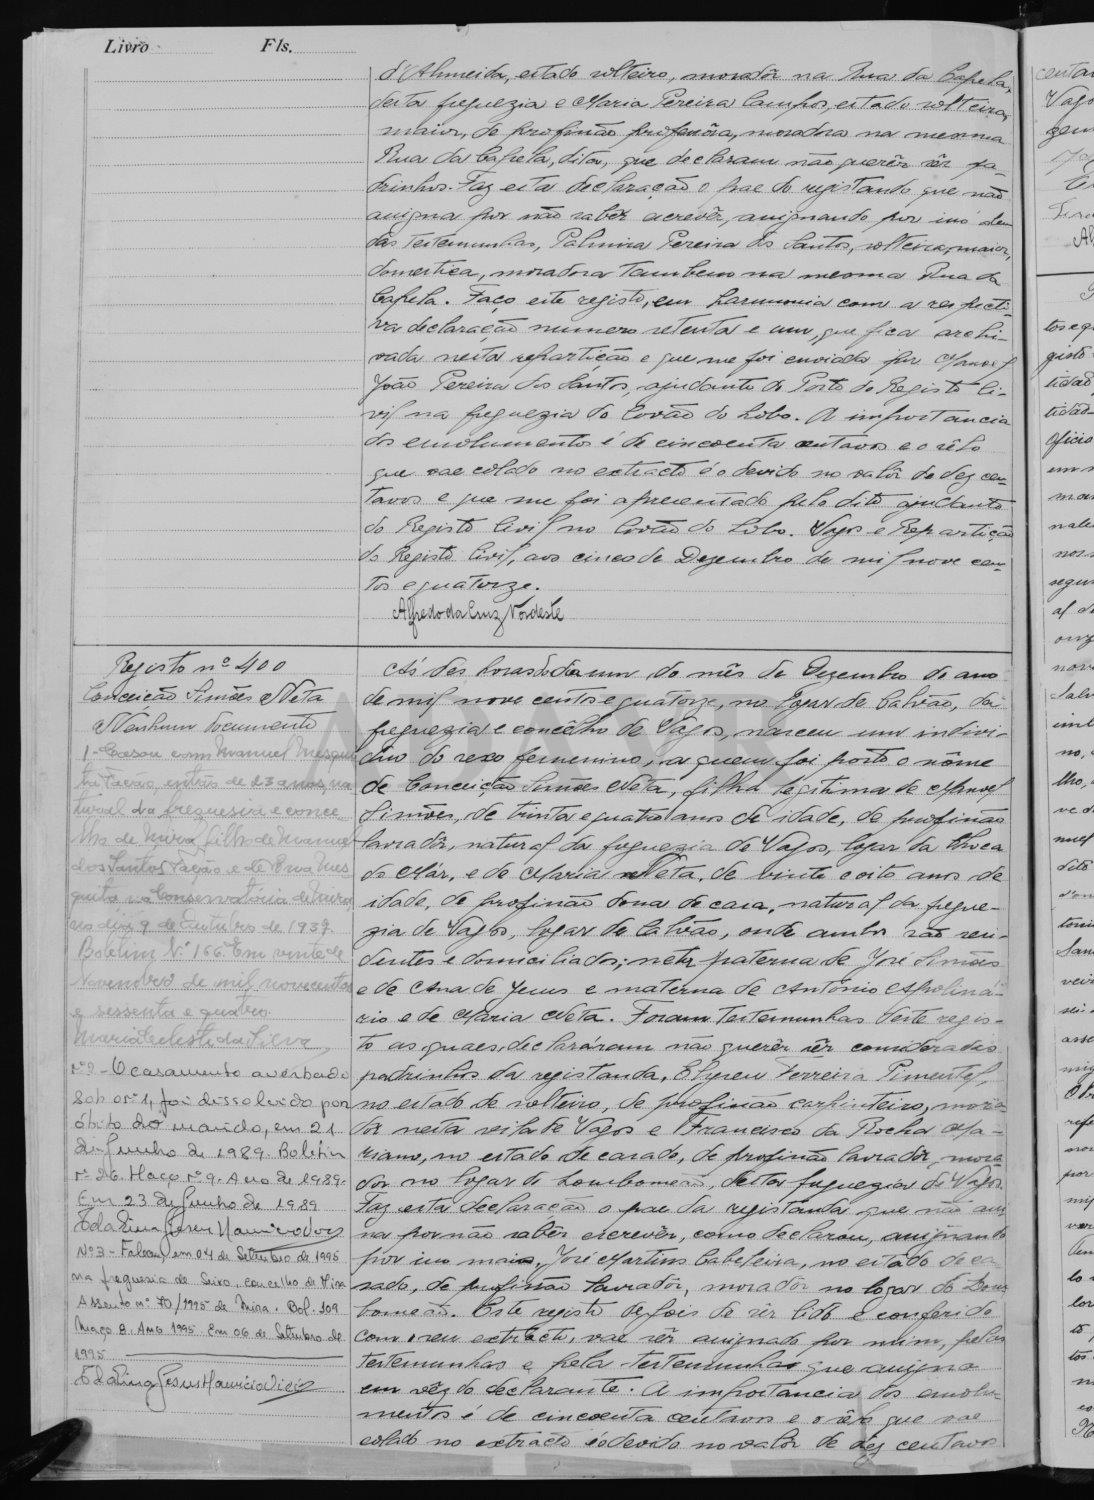 Livro Fls.
d'Almeida, estado solteiro, moradôr na Rua da Capela,
desta freguezia e Maria Pereira Campos, estado solteira,
maior, de profissão professôra, moradora na mesma
Rua da Capela, dita, que declaram não querêr sêr pa-
drinhos. Faz esta declaração o pae do registando que não
assigna por não sabêr escrevêr, assignando por isso alem
das testemunhas, Palmira Pereira dos Santos, solteira, maior,
domestica, moradora tambem na mesma Rua da
Capela. Faço este registo, em harmonia com a respecti-
va declaração numero setenta e um, que fica archi-
vada nesta repartição e que me foi enviada por Manoel
João Pereira dos Santos, ajudante do Posto do Registo Ci-
vil na freguezia do Covão do Lobo. A importancia
dos emolumentos é de cincoenta centavos e o sêlo
que vae colado no extracto é o devido no valôr de dez cen-
tavos e que me foi apresentado pelo dito ajudante
do Registo Civil no Covão do Lobo. Vagos e Repartição
do Registo Civil, aos cinco de Dezembro de mil nove cen-
tos e quatorze.
Alfredo da Cruz Nordeste
Registo nº 400
Conceição Simões Neta
Nenhum documento
1-Casou com Manuel Mesqui
ta Tação, entrão de 23 anos, na
tural da freguesia e conce
lho de Mira, filho de Manuel
dos Santos Tação e de Rosa Mes
quita na Conservatória de Mira,
no dia 9 de Outubro de 1937.
Boletim N: 166. Em vinte de
Novembro de mil novecentos
e sessenta e quatro.
Maria Celeste da Silva
nº2- O casamento averbado
sob o nº1, foi dissolvido por
óbito do marido, em 21
de Junho de 1989. Boletim
nº 26. Maço nº 9. Ano de 1989.
Em 23 de Junho de 1989
Nº3- Faleceu em 04 de Setembro de 1995
na freguesia de Seixo, concelho de Mira
Assento nº 70/1995 de Mira. Bol. 109
Maço 8. Ano 1995. Em 06 de Setembro de
1995
Ás dés horas do dia um do mês de Dezembro do ano
de mil nove centos e quatorze, no logar de Calvão, da
freguezia e concêlho de Vagos, nasceu um indivi-
duo do sexo femenino, a quem foi posto o nôme
de Conceição Simões Neta, filha legitima de Manoel
Simões, de trinta e quatro anos de idade, de profissão
lavradôr, natural da freguezia de Vagos, logar da Choca
do Már, e de Maria Neta, de vinte e oito anos de
idade, de profissão dona de casa, natural da fregue-
zia de Vagos, logar de Calvão, onde ambos são resi-
dentes e domiciliados; neta paterna de José Simões
e de Ana de Jesus e materna de António Apoliná-
rio e de Maria Neta. Foram testemunhas deste regis-
to as quaes, declararam não querêr sêr consideradas
padrinhos da registanda, Elyseu Ferreira Pimentel,
no estado de solteiro, de profissão carpinteiro, mora
dôr nesta vila de Vagos e Francisco da Rocha Ma-
riano, no estado de casado, de profissão lavradôr, mora
dôr no logar de Lombomeão, desta freguezia de Vagos.
Faz esta declaração o pae da registanda que não assi
na por não sabêr escrevêr, como declarou, assignando
por isso mais, José Martins Cabeleira, no estado de ca
sado, de profissão lavradôr, moradôr no logar do Lom
bomeão. Este registo depois de sêr lido e conferido
com o seu extracto, vae sêr assignado por mim, pelas
testemunhas e pela testemunha que assigna
em vêz do declarante. A importancia dos emolu-
mentos é de cincoenta centavos e o sêlo que vae
colado no extracto é o devido no valôr de déz centavos